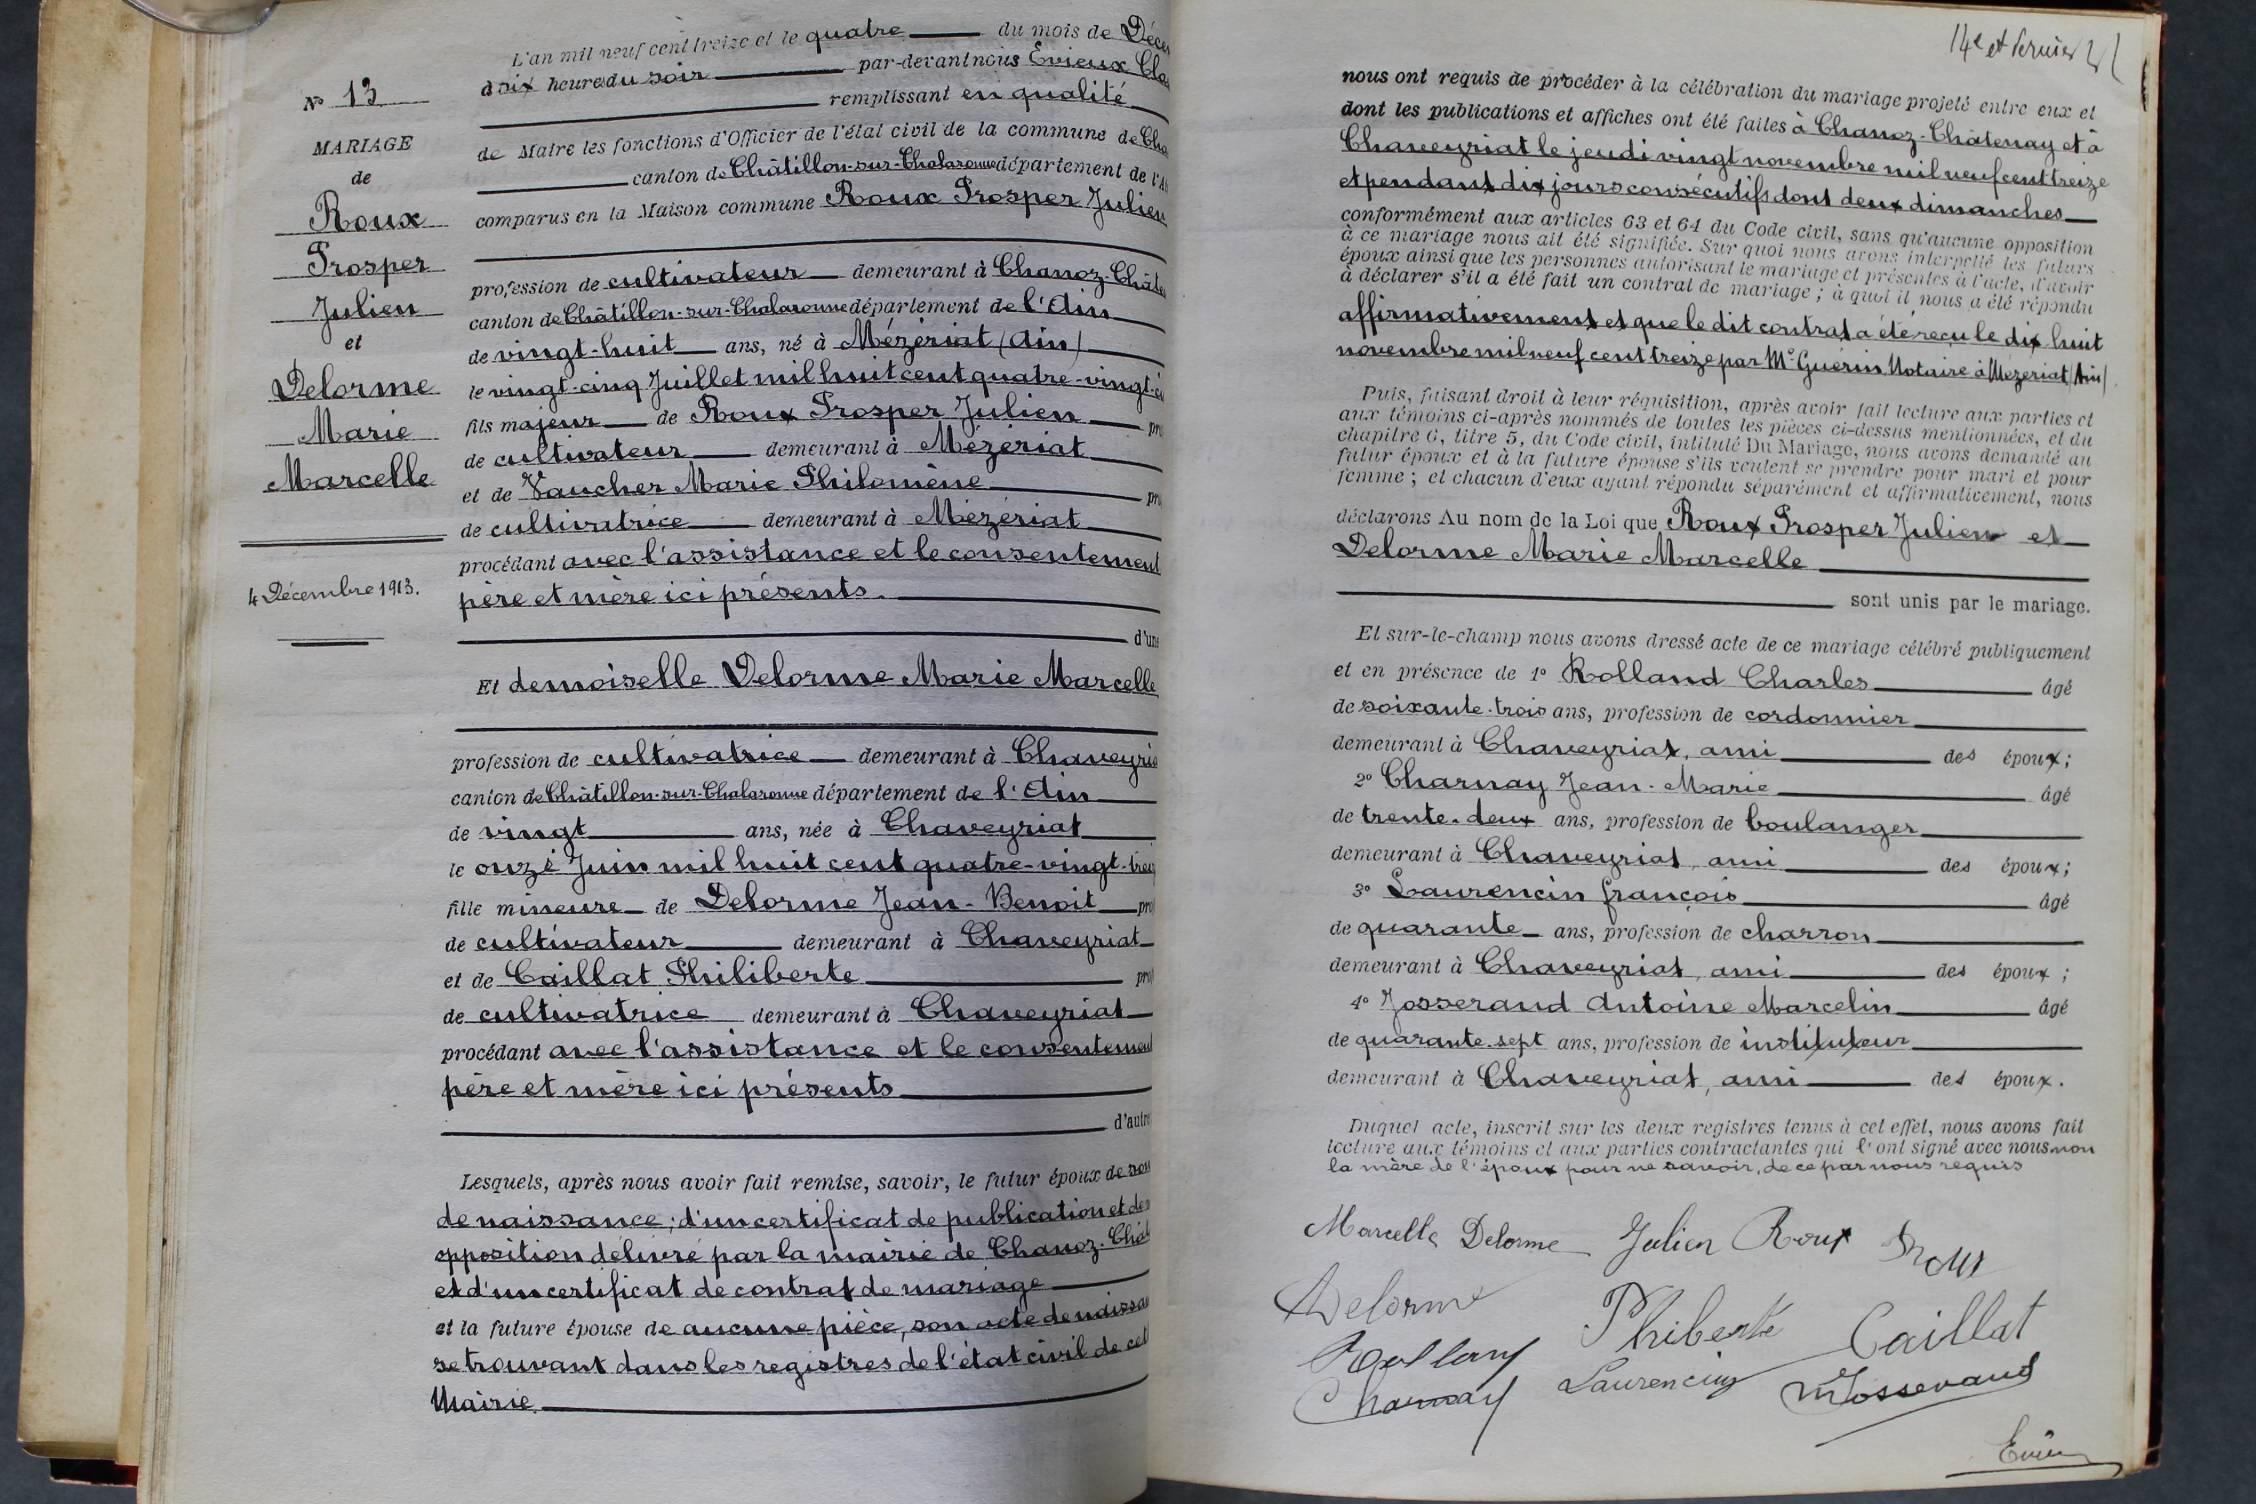 N° 13
MARIAGE
de
Roux
Prosper
Julien
et
Delorme
Marie
Marcelle
4 Décembre 1913.
L'an mil neuf cent treize et le quatre du mois de Déce
à six heures du soir par-devant nous Evieux Cla
remplissant en qualité
de Maire les fonctions d'Officier de l'état civil de la commune de Cha
canton de Châtillon-sur-Chalaronne département de l'A
comparus en la Maison commune Roux Prosper Julien
profession de cultivateur demeurant à Chanoz-Châte
canton de Châtillon-sur-Chalaronne département de l'Ain
de vingt-huit ans, né à Mézériat (Ain)
le vingt-cinq Juillet mil huit cent quatre-vingt-ci
fils majeur de Roux Prosper Julien pro
de cultivateur demeurant à Mézériat
et de Vaucher Marie Philomène pro
de cultivatrice demeurant à Mézériat
procédant avec l'assistance et le consentement
père et mère ici présents.
d'une
Et demoiselle Delorme Marie Marcelle
profession de cultivatrice demeurant à Chaveyria
canton de Châtillon-sur-Chalaronne département de l'Ain
de vingt ans, née à Chaveyriat
le onze Juin mil huit cent quatre-vingt-trei
fille mineure de Delorme Jean-Benoit pro
de cultivateur demeurant à Chaveyriat
et de Caillat Philiberte pro
de cultivatrice demeurant à Chaveyriat
procédant avec l'assistance et le consentement
père et mère ici présents
d'autre
Lesquels, après nous avoir fait remise, savoir, le futur époux de son
de naissance; d'un certificat de publication et de
opposition délivré par la mairie de Chanoz-Chât
et d'un certificat de contrat de mariage
et la future épouse de aucune pièce, son acte de naissa
se trouvant dans les registres de l'état civil de cet
Mairie.
14e et dernier
nous ont requis de procéder à la célébration du mariage projeté entre eux et
dont les publications et affiches ont été faites à Chanoz-Châtenay et à
Chaveyriat le jeudi vingt novembre mil neuf cent treize
et pendant dix jours consécutifs dont deux dimanches
conformément aux articles 63 et 64 du Code civil, sans qu'aucune opposition
à ce mariage nous ait été signifiée. Sur quoi nous avons interpellé les futurs
époux ainsi que les personnes autorisant le mariage et présentes à l'acte, d'avoir
à déclarer s'il a été fait un contrat de mariage; à quoi il nous a été répondu
affirmativement et que le dit contrat a été reçu le dix huit
novembre mil neuf cent treize par Me Guérin Notaire à Mézeriat (Ain)
Puis, faisant droit à leur réquisition, après avoir fait lecture aux parties et
aux témoins ci-après nommés de toutes les pièces ci-dessus mentionnées, et du
chapitre 6, titre 5, du Code civil, intitulé Du Mariage, nous avons demandé au
futur époux et à la future épouse s'ils veulent se prendre pour mari et pour
femme; et chacun d'eux ayant répondu séparément et affirmativement, nous
déclarons Au nom de la Loi que Roux Prosper Julien et
Delorme Marie Marcelle
sont unis par le mariage.
Et sur-le-champ nous avons dressé acte de ce mariage célébré publiquement
et en présence de 1° Rolland Charles âgé
de soixante-trois ans, profession de cordonnier
demeurant à Chaveyriat, ami des époux;
2° Charnay Jean-Marie âgé
de trente-deux ans, profession de boulanger
demeurant à Chaveyriat, ami des époux;
3° Laurencin françois âgé
de quarante ans, profession de charron
demeurant à Chaveyriat, ami des époux;
4° Josserand Antoine Marcelin âgé
de quarante-sept ans, profession de instituteur
demeurant à Chaveyriat, ami des époux.
Duquel acte, inscrit sur les deux registres tenus à cet effet, nous avons fait
lecture aux témoins et aux parties contractantes qui l'ont signé avec nous non
la mère de l'époux pour ne savoir, de ce par nous requis
Marcelle Delorme Julien Roux Roux
Delorme Phiberte Caillat
Rolland Laurencin M Josserand
Charnay
Evieux